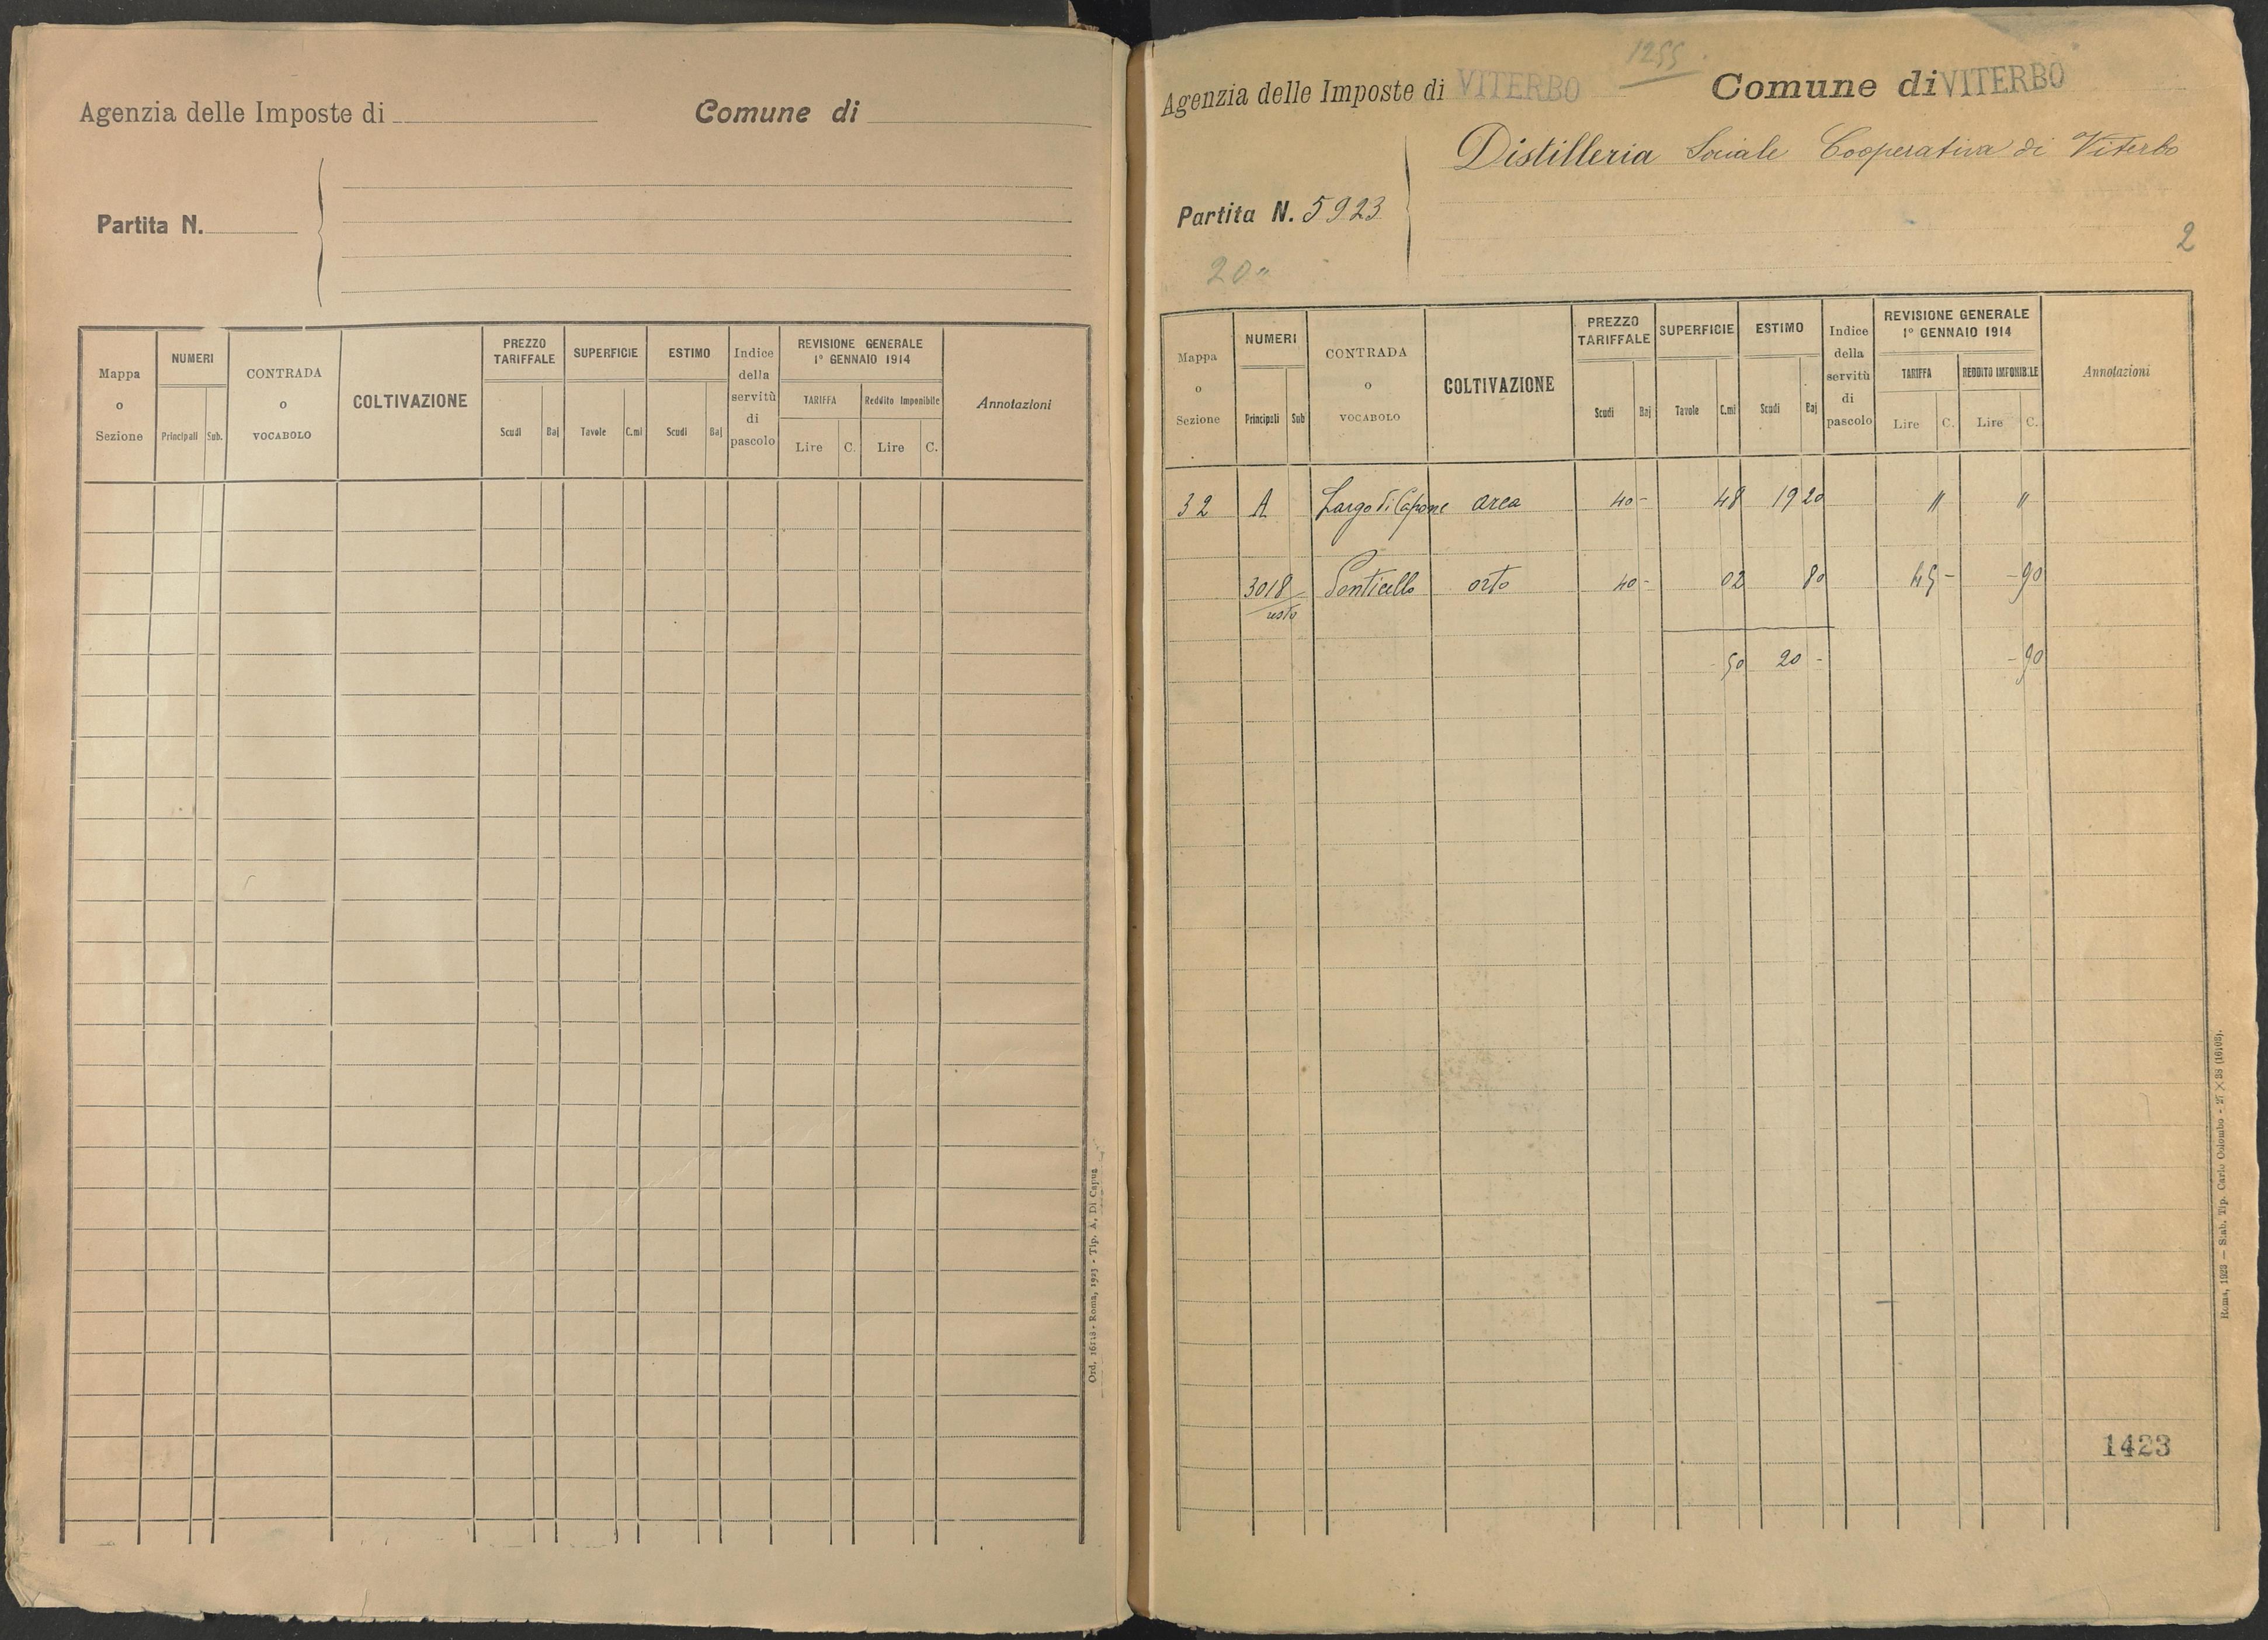 Agenzia delle Imposte di
Comune di
Partita N.
Mappa o Sezione
NUMERI
Principali Sub.
CONTRADA o VOCABOLO
COLTIVAZIONE
PREZZO TARIFFALE
Scudi Baj
SUPERFICIE
Tavole C.mi
ESTIMO
Scudi Baj
Indice della servitù di pascolo
REVISIONE GENERALE
1° GENNAIO 1914
TARIFFA
Lire C.
Reddito Imponibile
Lire C.
Annotazioni
Ord. 16118 - Roma, 1923 - Tip. A. Di Capua
1255
Agenzia delle Imposte di VITERBO
Comune di VITERBO
Distilleria Sociale Cooperativa di Viterbo
Partita N. 5923
2
20"
Mappa o Sezione
NUMERI
Principali Sub
CONTRADA o VOCABOLO
COLTIVAZIONE
PREZZO TARIFFALE
Scudi Baj
SUPERFICIE
Tavole C.mi
ESTIMO
Scudi Baj
Indice della servitù di pascolo
REVISIONE GENERALE
1° GENNAIO 1914
TARIFFA
Lire C.
REDDITO IMPONIBILE
Lire C.
Annotazioni
32 A Largo di Capone area 40 - 48 19 20 " "
3018/resto Ponticello orto 40 - 02 80 45 - - 90
- 50 20 - - 90
1423
Roma, 1923 — Stab. Tip. Carlo Colombo - 27 X 38 (16108).